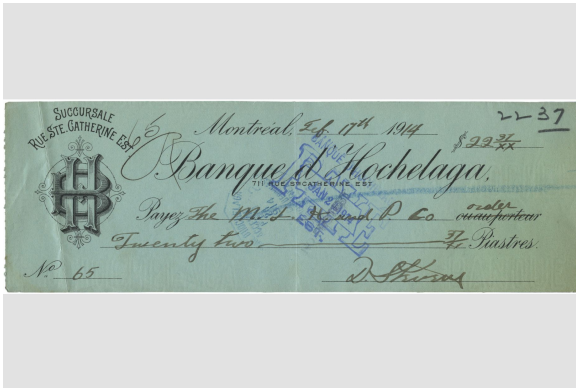 SUCCURSALE
RUE STE. CATHERINE EST
22 37
Montréal, Feb 17th 1914
$22 37/XX
Banque d'Hochelaga.
711 RUE STE CATHERINE EST.
Payez The M. L. H and P Co order ou au porteur
Twenty two 37/XX Piastres.
No. 65